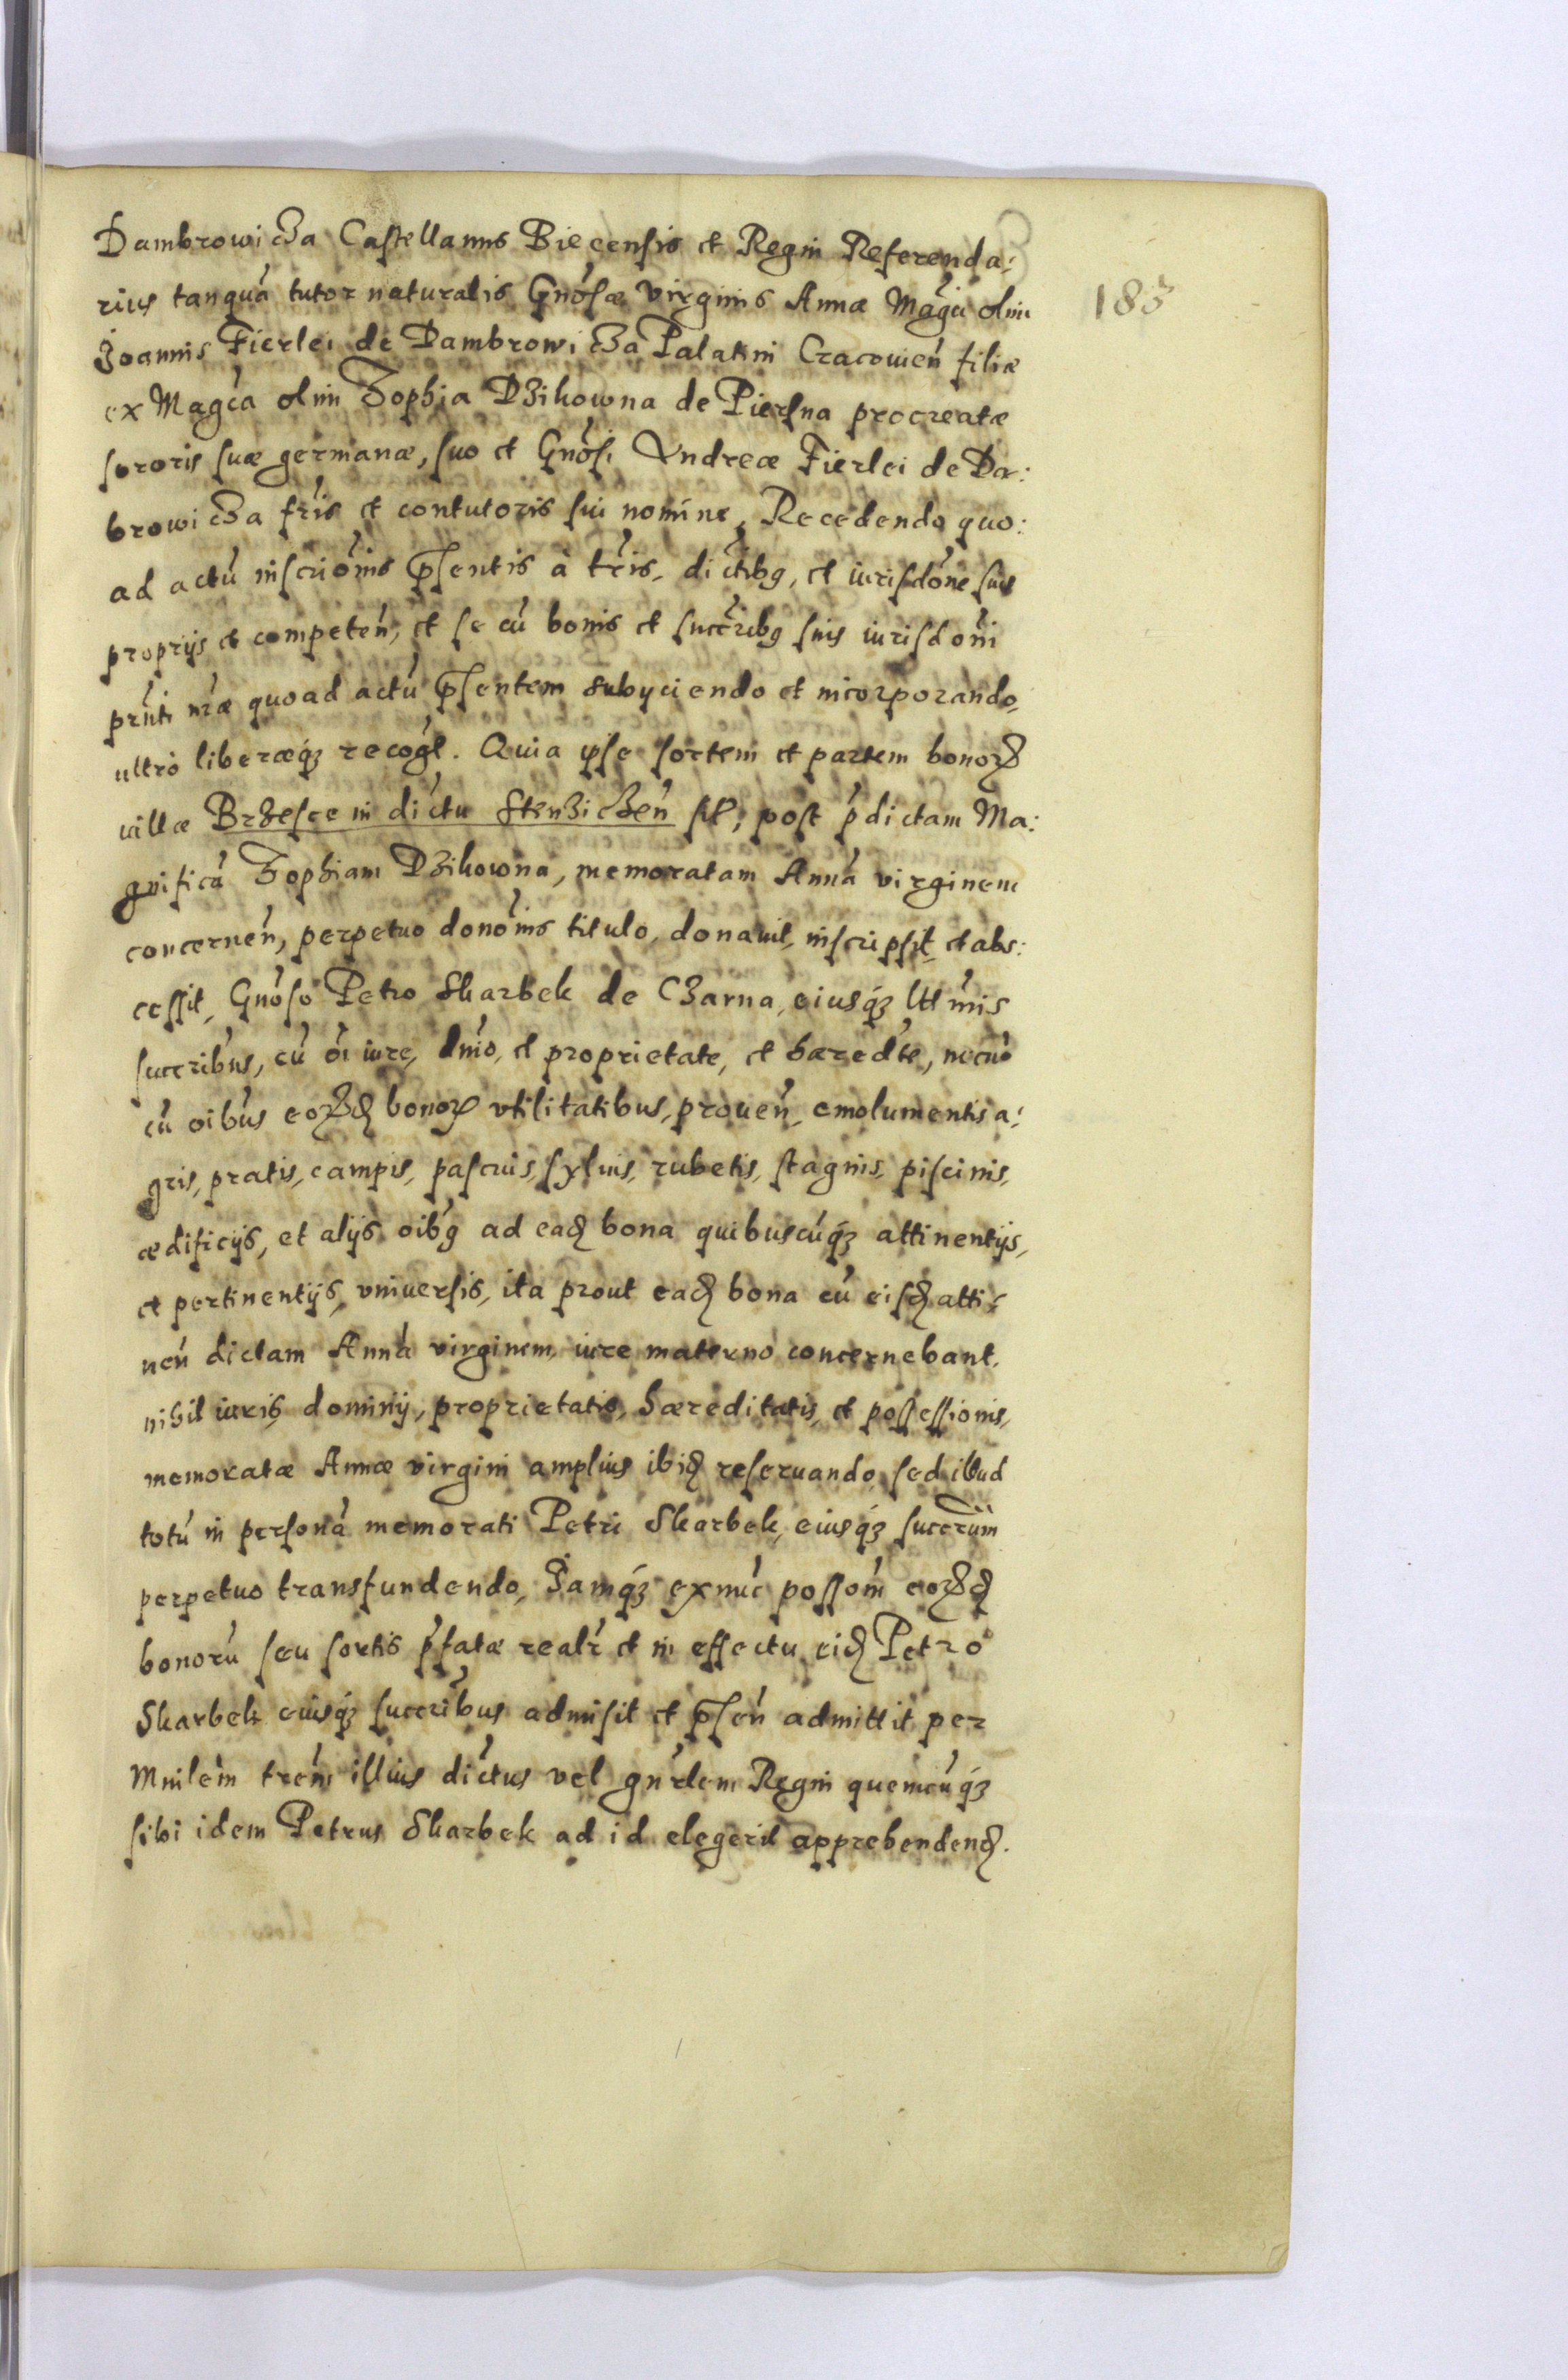 Dambrowicza Castellanus Biecensis et Regni Referenda:
rius tanquá tutor naturalis Gnósæ virginis Annæ Magci olim
183
Joannis Fierlei de Dambrowicza Palatini Cracouień filiæ
ex Magća olim Zophia Dzikowna de Piersna procreatæ
sororis suæ germanæ, suo et Gnósi Andreæ Fierlei de Da:
browicza frís et contutoris sui nomine, Recedendo quo:
ad actú inscriónis pŝentis à trís, dictibg, et iurisdóne suis
proprijs et competeń, et se cú bonis et succribg suis iurisdóni
prńti nŕæ quoad actú pŝentem subyciendo et incorporando,
ultrò liberæq́ꝫ recogĺ. Quia ipse sortem et partem bonoꝝ
villæ Brzesce in dictu Stenziczeń sit, post ṕdictam Ma:
gnificá Zophiam Dzikowna, memoratam Anná virginem
concerneń, perpetuo donónis titulo, donauit, inscripsit et abs:
cessit, Gnóso Petro Skarbek de Czarna, eiusq́ꝫ lttímis
succribús, cú oí iure, dnío, et proprietate, et hæredte, necnó
cú oibús eoꝝđ bonoꝝ vtilitatibus, proueń, emolumentis a:
gris, pratis, campis, pascuis, syluis, rubetis, stagnis, piscinis,
ædificijs, et alijs oibǵ ad eađ bona quibuscúq́ꝫ attinentijs,
et pertinentijs, vniuersis, ita prout eađ bona cú eisđ atti:
neń dictam Anná virginem iure materno concernebant,
nihil iuris, dominij, proprietatis, hæreditatis, et possessionis,
memoratæ Annæ virgini amplius ibiđ reseruando, sed illud
totú in personá memorati Petri Skarbek, eiusq́ꝫ succrum
perpetuo transfundendo, Jamq́ꝫ exnúc possoḿ eoꝝđ
bonorú seu sortis ṕfatæ realŕ et in effectu eiđ Petro
Skarbek eiusq́ꝫ succribus admisit et pŝeń admittit per
Mnilem treḿ illius dictus vel gnŕlem Regni quemcúq́ꝫ
sibi idem Petrus Skarbek ad id elegerit apprehendenđ.